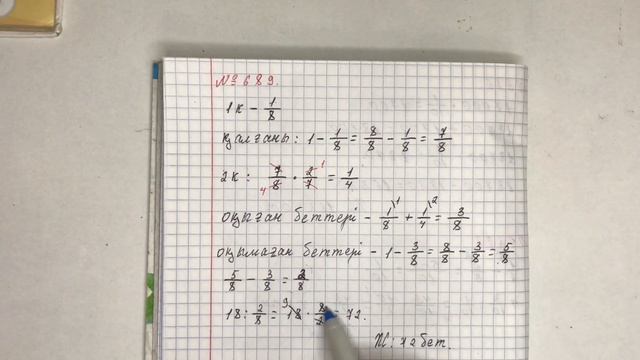 №689.
1к - 1/8
қалғаны: 1 - 1/8 = 8/8 - 1/8 = 7/8
2к: 7/8 · 2/7 = 1/4
оқыған беттері - 1/8 + 1/4 = 3/8
оқымаған беттері - 1 - 3/8 = 8/8 - 3/8 = 5/8
5/8 - 3/8 = 2/8
18 : 2/8 = 18 · 8/2 = 72.
Ж: 72 бет.